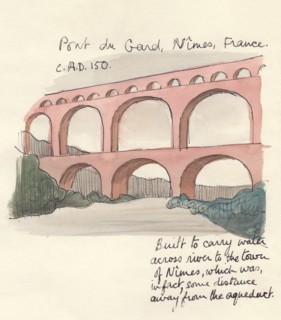 Pont du Gard, Nîmes, France.
C.A.D. 150.
Built to carry water
across river to the town
of Nîmes, which was,
in fact, some distance
away from the aqueduct.